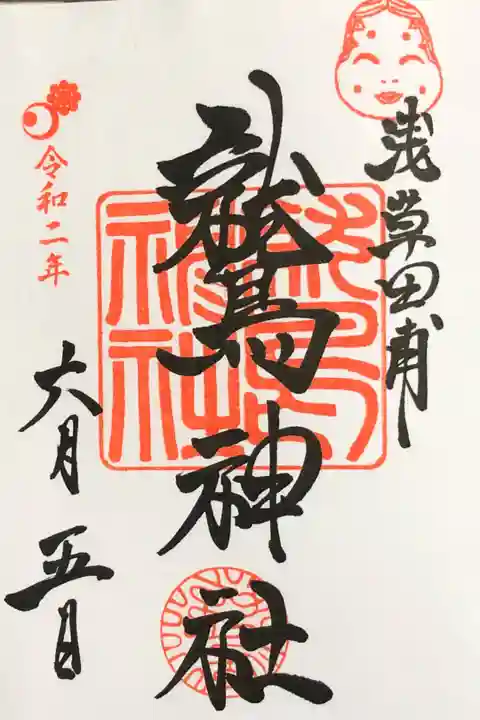 浅草田甫
鷲神社
令和二年
六月
五日